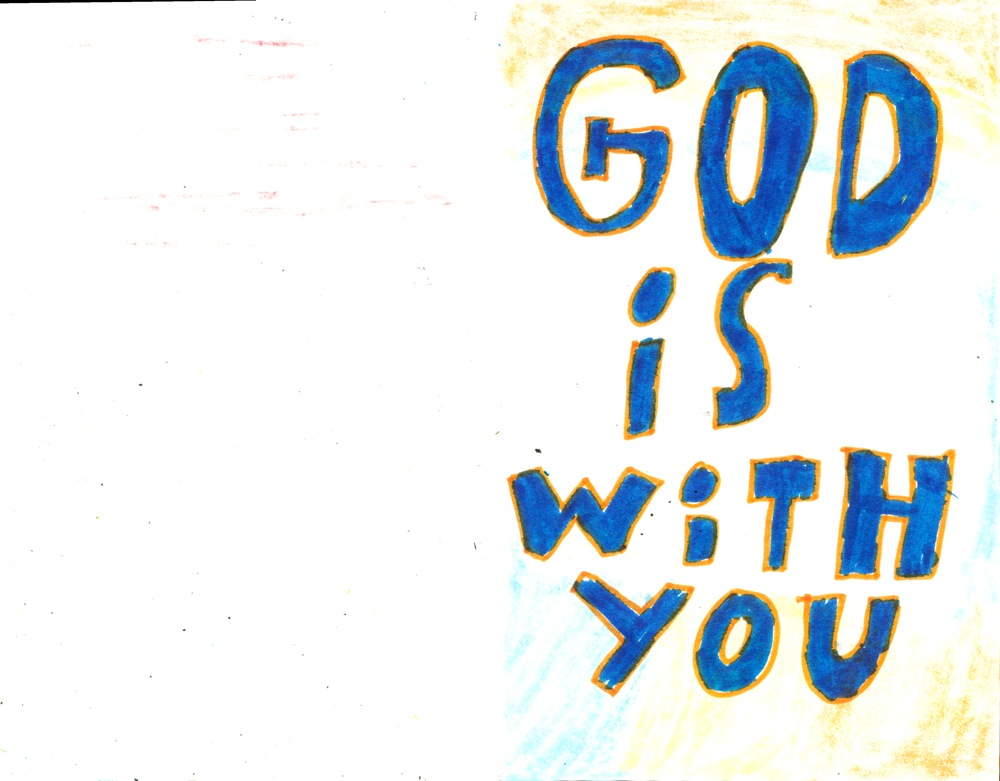 GOD
iS
WiTH
YOU